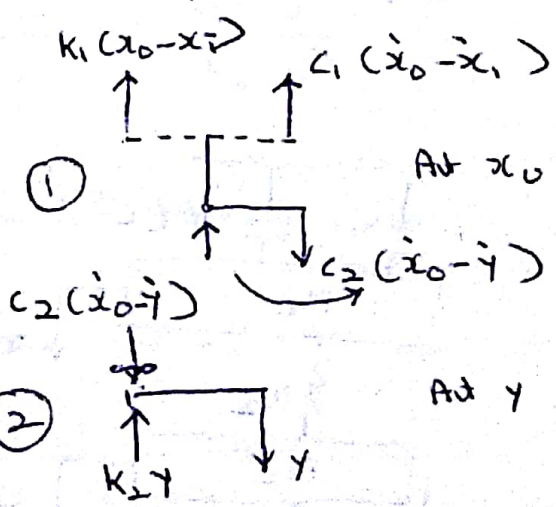 K₁(x₀-x₁) C₁(ẋ₀-ẋ₁)
① At x₀
C₂(ẋ₀-ẏ)
C₂(ẋ₀-ẏ)
② At y
K₂y y